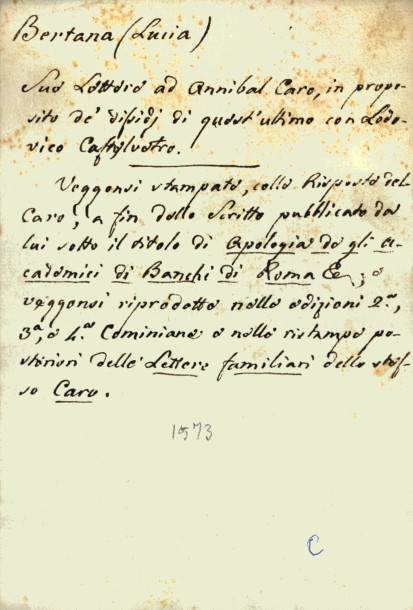 Bertana (Lucia)
Sue Lettere ad Annibal Caro, in propo-
sito de' disidj di quest'ultimo con Lodo-
vico Castelvetro.
Veggonsi stampate, colle Risposte del
Caro, a fin dello Scritto pubblicato da
lui sotto il titolo di Apologia de gli A-
cademici di Banchi di Roma &; e
veggonsi riprodotte nelle edizioni 2.ª,
3.ª, e 4.ª Cominiane e nelle ristampe po-
steriori delle Lettere familiari dello stes-
so Caro.
1573
C